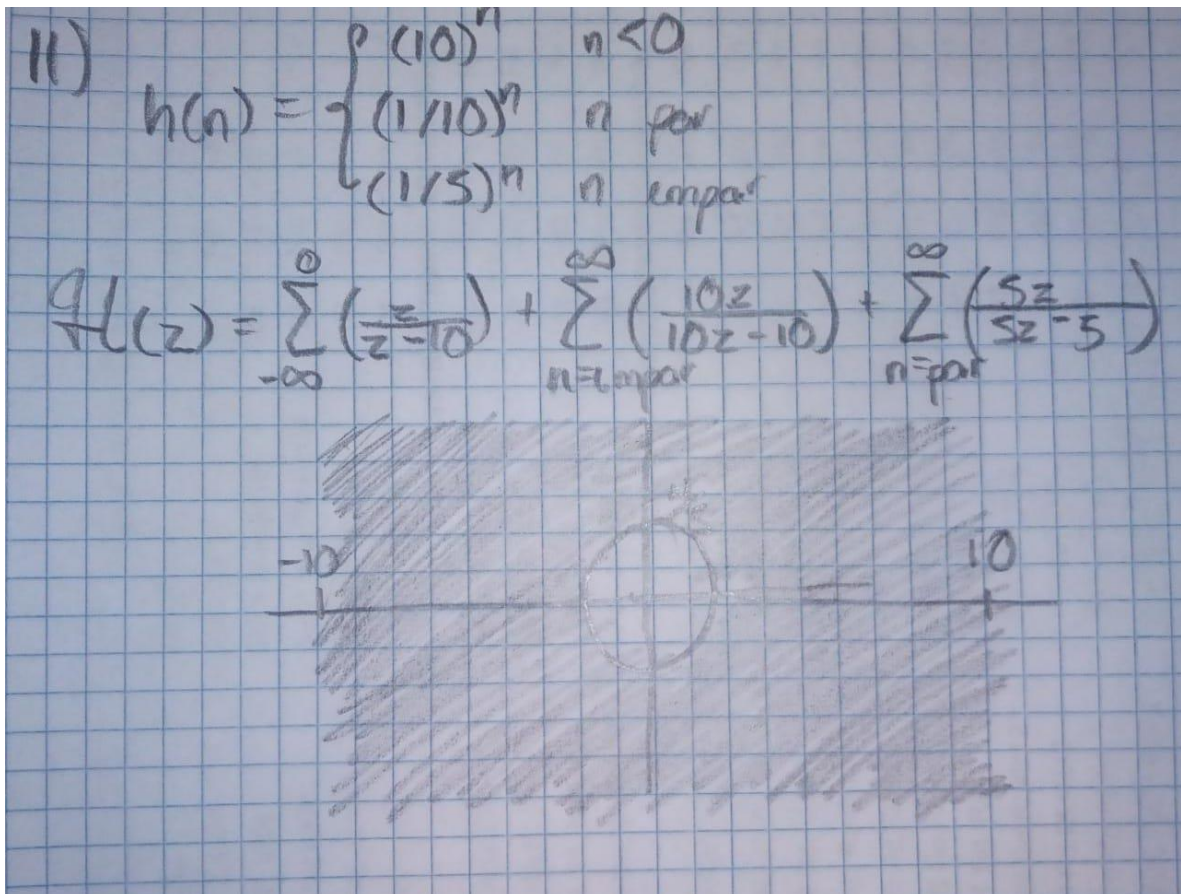 11)
h(n) = { (10)^n n<0
(1/10)^n n par
(1/5)^n n impar
H(z) = \sum_{-∞}^{0} (z/(z-10)) + \sum_{n=impar}^{∞} (10z/(10z-10)) + \sum_{n=par}^{∞} (5z/(5z-5))
-10 10